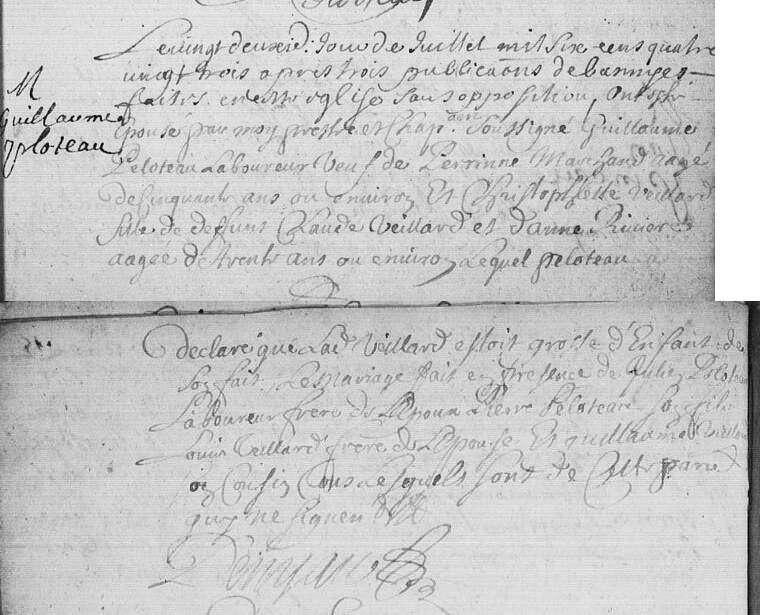 M
Guillaume
peloteau
Le vingt deuxie. Jour de Juillet mil six cens quatre
vingt trois apres trois publicaōns de bannyes
faites en cette eglise sans opposition, ont esté
Epousé par moy prestre et Chap. soussigné Guillaume
Peloteau Laboureur Veuf de Perrinne Marchand aagé
de Cinquante ans ou environ Et Christophlette Veillard
fille de deffunt Claude Veillard et d'anne Riviere
aagee de trente ans ou environ, Lequel peloteau
declare que Lad Veillard estoit grosse d'Enfant de
son fait, Le Mariage fait en presence de Julien Peloteau
Laboureur frere de L'Epoux Pierre Peloteau son fils
Louis Veillard frere de L'Epouse Et guillaume Veillard
Cousin tous Lesquels sont de Cette par
qui ne signent